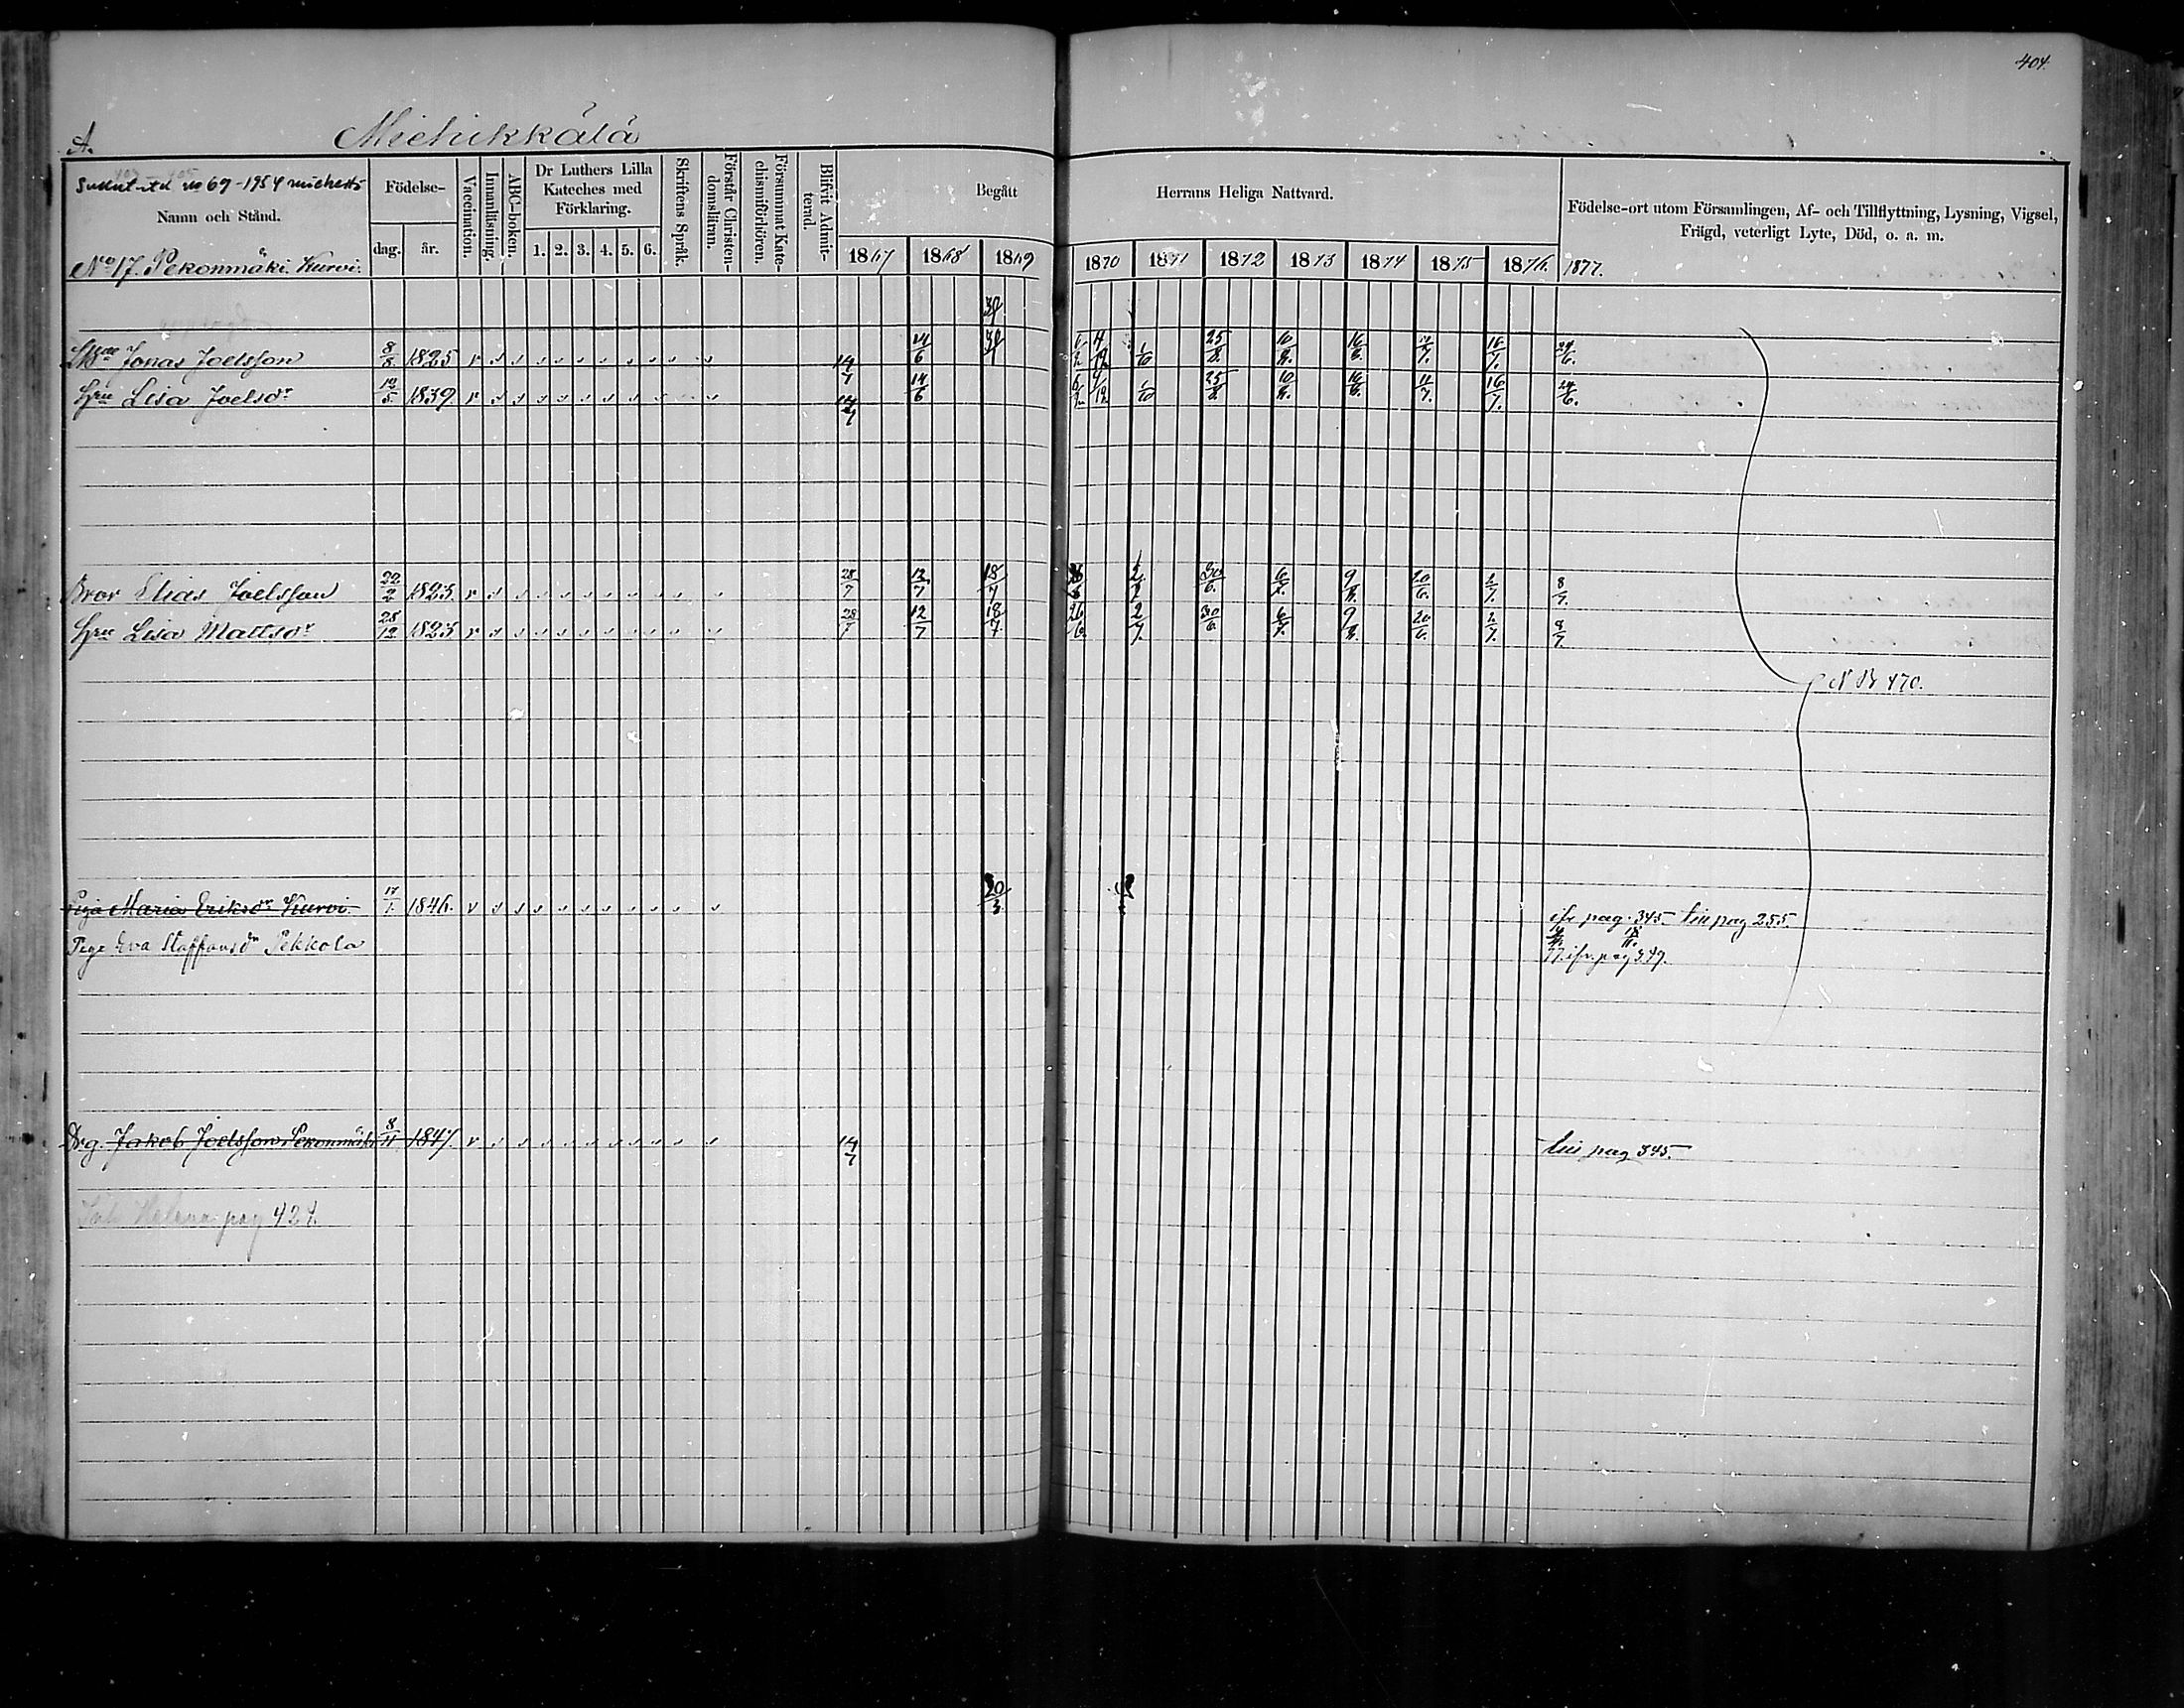 404.
A.
Miehikkälä
Sukut-itd no 69-1954
Namn och Stånd.
No 17. Pekonmäki. Kurvi.
Födelse-
dag. år.
Vaccination.
Innanläsning.
ABC-boken.
Dr Luthers Lilla
Kateches med
Förklaring.
1. 2. 3. 4. 5. 6.
Skriftens Språk.
Förstår Christen-
domsläran.
Försummat Kate-
chismiförhören.
Blifvit Admit-
terad.
Begått Herrans Heliga Nattvard.
1867 1868 1869 1870 1871 1872 1873 1874 1875 1876. 1877.
Födelse-ort utom Församlingen, Af- och Tillflyttning, Lysning, Vigsel,
Frägd, veterligt Lyte, Död, o. a. m.
Jonas Joelsson 8/8 1825 v 14/7 14/6 25/8 10/8. 16/8. 11/7. 16/7. 24/6.
Hru Lisa Joelsdr 12/5 1839 v 14/7 14/6 25/8 10/8. 16/8. 11/7. 16/7. 24/6.
Bror Elias Joelsson 22/2 1823. v 28/7 12/7 18/7 26/6 2/7 30/6. 6/7. 9/8. 20/6. 2/7. 8/7.
Hru Lisa Mattsdr 28/12 1823 v 28/7 12/7 18/7 26/6 2/7. 30/6. 6/7. 9/8. 20/6. 2/7. 8/7.
N B 470.
Piga Maria Eriksdr Kurvi. 17/1. 1846. v 20/3. ifr pag. 345 lin pag 255.
Piga Eva Staffansdr Pekkola 77. ifr. pag 349.
Drg. Jakob Joelsson Pekonmäki 8/11 1847. v 14/7 lin pag 345.
Helena pag 424.